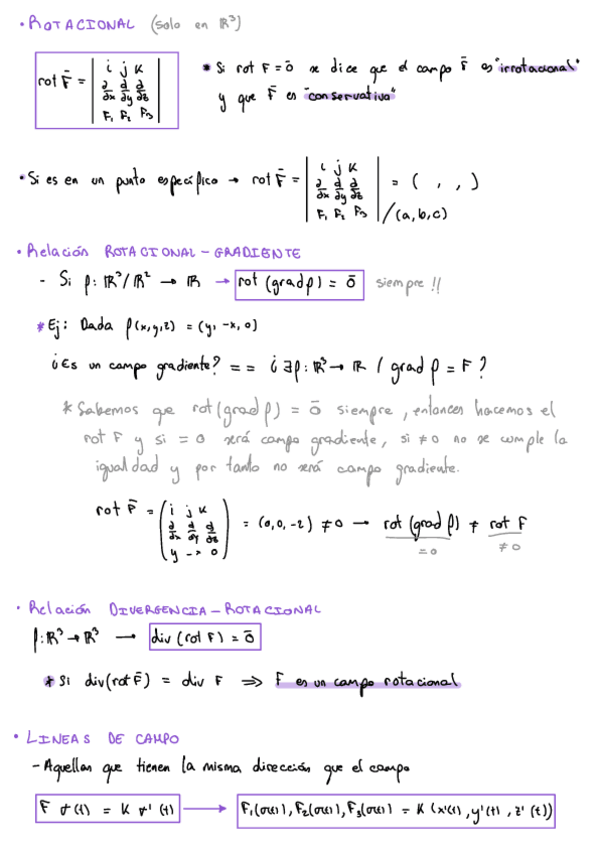 • ROTACIONAL (solo en ℝ³)
rot F̄ = | i j k
∂/∂x ∂/∂y ∂/∂z
F₁ F₂ F₃ |
* Si rot F = ō se dice que el campo F̄ es "irrotacional"
y que F̄ es "conservativo"
• Si es en un punto específico → rot F̄ = | i j k
∂/∂x ∂/∂y ∂/∂z
F₁ F₂ F₃ | /(a,b,c) = ( , , )
• Relación ROTACIONAL - GRADIENTE
- Si f: ℝ³/ℝ² → ℝ → rot (grad f) = ō siempre !!
* Ej: Dada f(x,y,z) = (y, -x, 0)
¿Es un campo gradiente? == ¿ ∃ f: ℝ³ → ℝ / grad f = F ?
* Sabemos que rot (grad f) = ō siempre, entonces hacemos el
rot F y si = 0 será campo gradiente, si ≠ 0 no se cumple la
igualdad y por tanto no será campo gradiente.
rot F̄ = ( i j k
∂/∂x ∂/∂y ∂/∂z
y -x 0 ) = (0,0,-2) ≠ 0 → rot (grad f) ≠ rot F
= 0 ≠ 0
• Relación DIVERGENCIA - ROTACIONAL
f: ℝ³ → ℝ³ → div (rot F) = ō
* Si div (rot F̄) = div F ⇒ F es un campo rotacional
• LINEAS DE CAMPO
- Aquellas que tienen la misma dirección que el campo
F σ(t) = K σ' (t) → F₁(σ(t)), F₂(σ(t)), F₃(σ(t)) = K (x'(t), y'(t), z'(t))